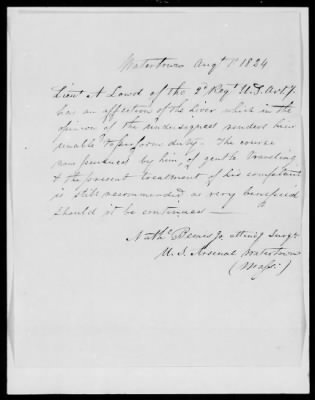 Watertown Augt 1st 1824
Lieut A Lowd of the 2d Regt U.S. Arty.
has an affection of the Liver which in the
opinion of the undersigned renders him
unable to perform duty. The course
now pursued by him, of gentle traveling
& the present treatment of his complaint
is still recommended as very beneficial
should it be continued —
Nathl Jr. Attendg Surgn
U.S. Arsenal Watertown
(Massts)